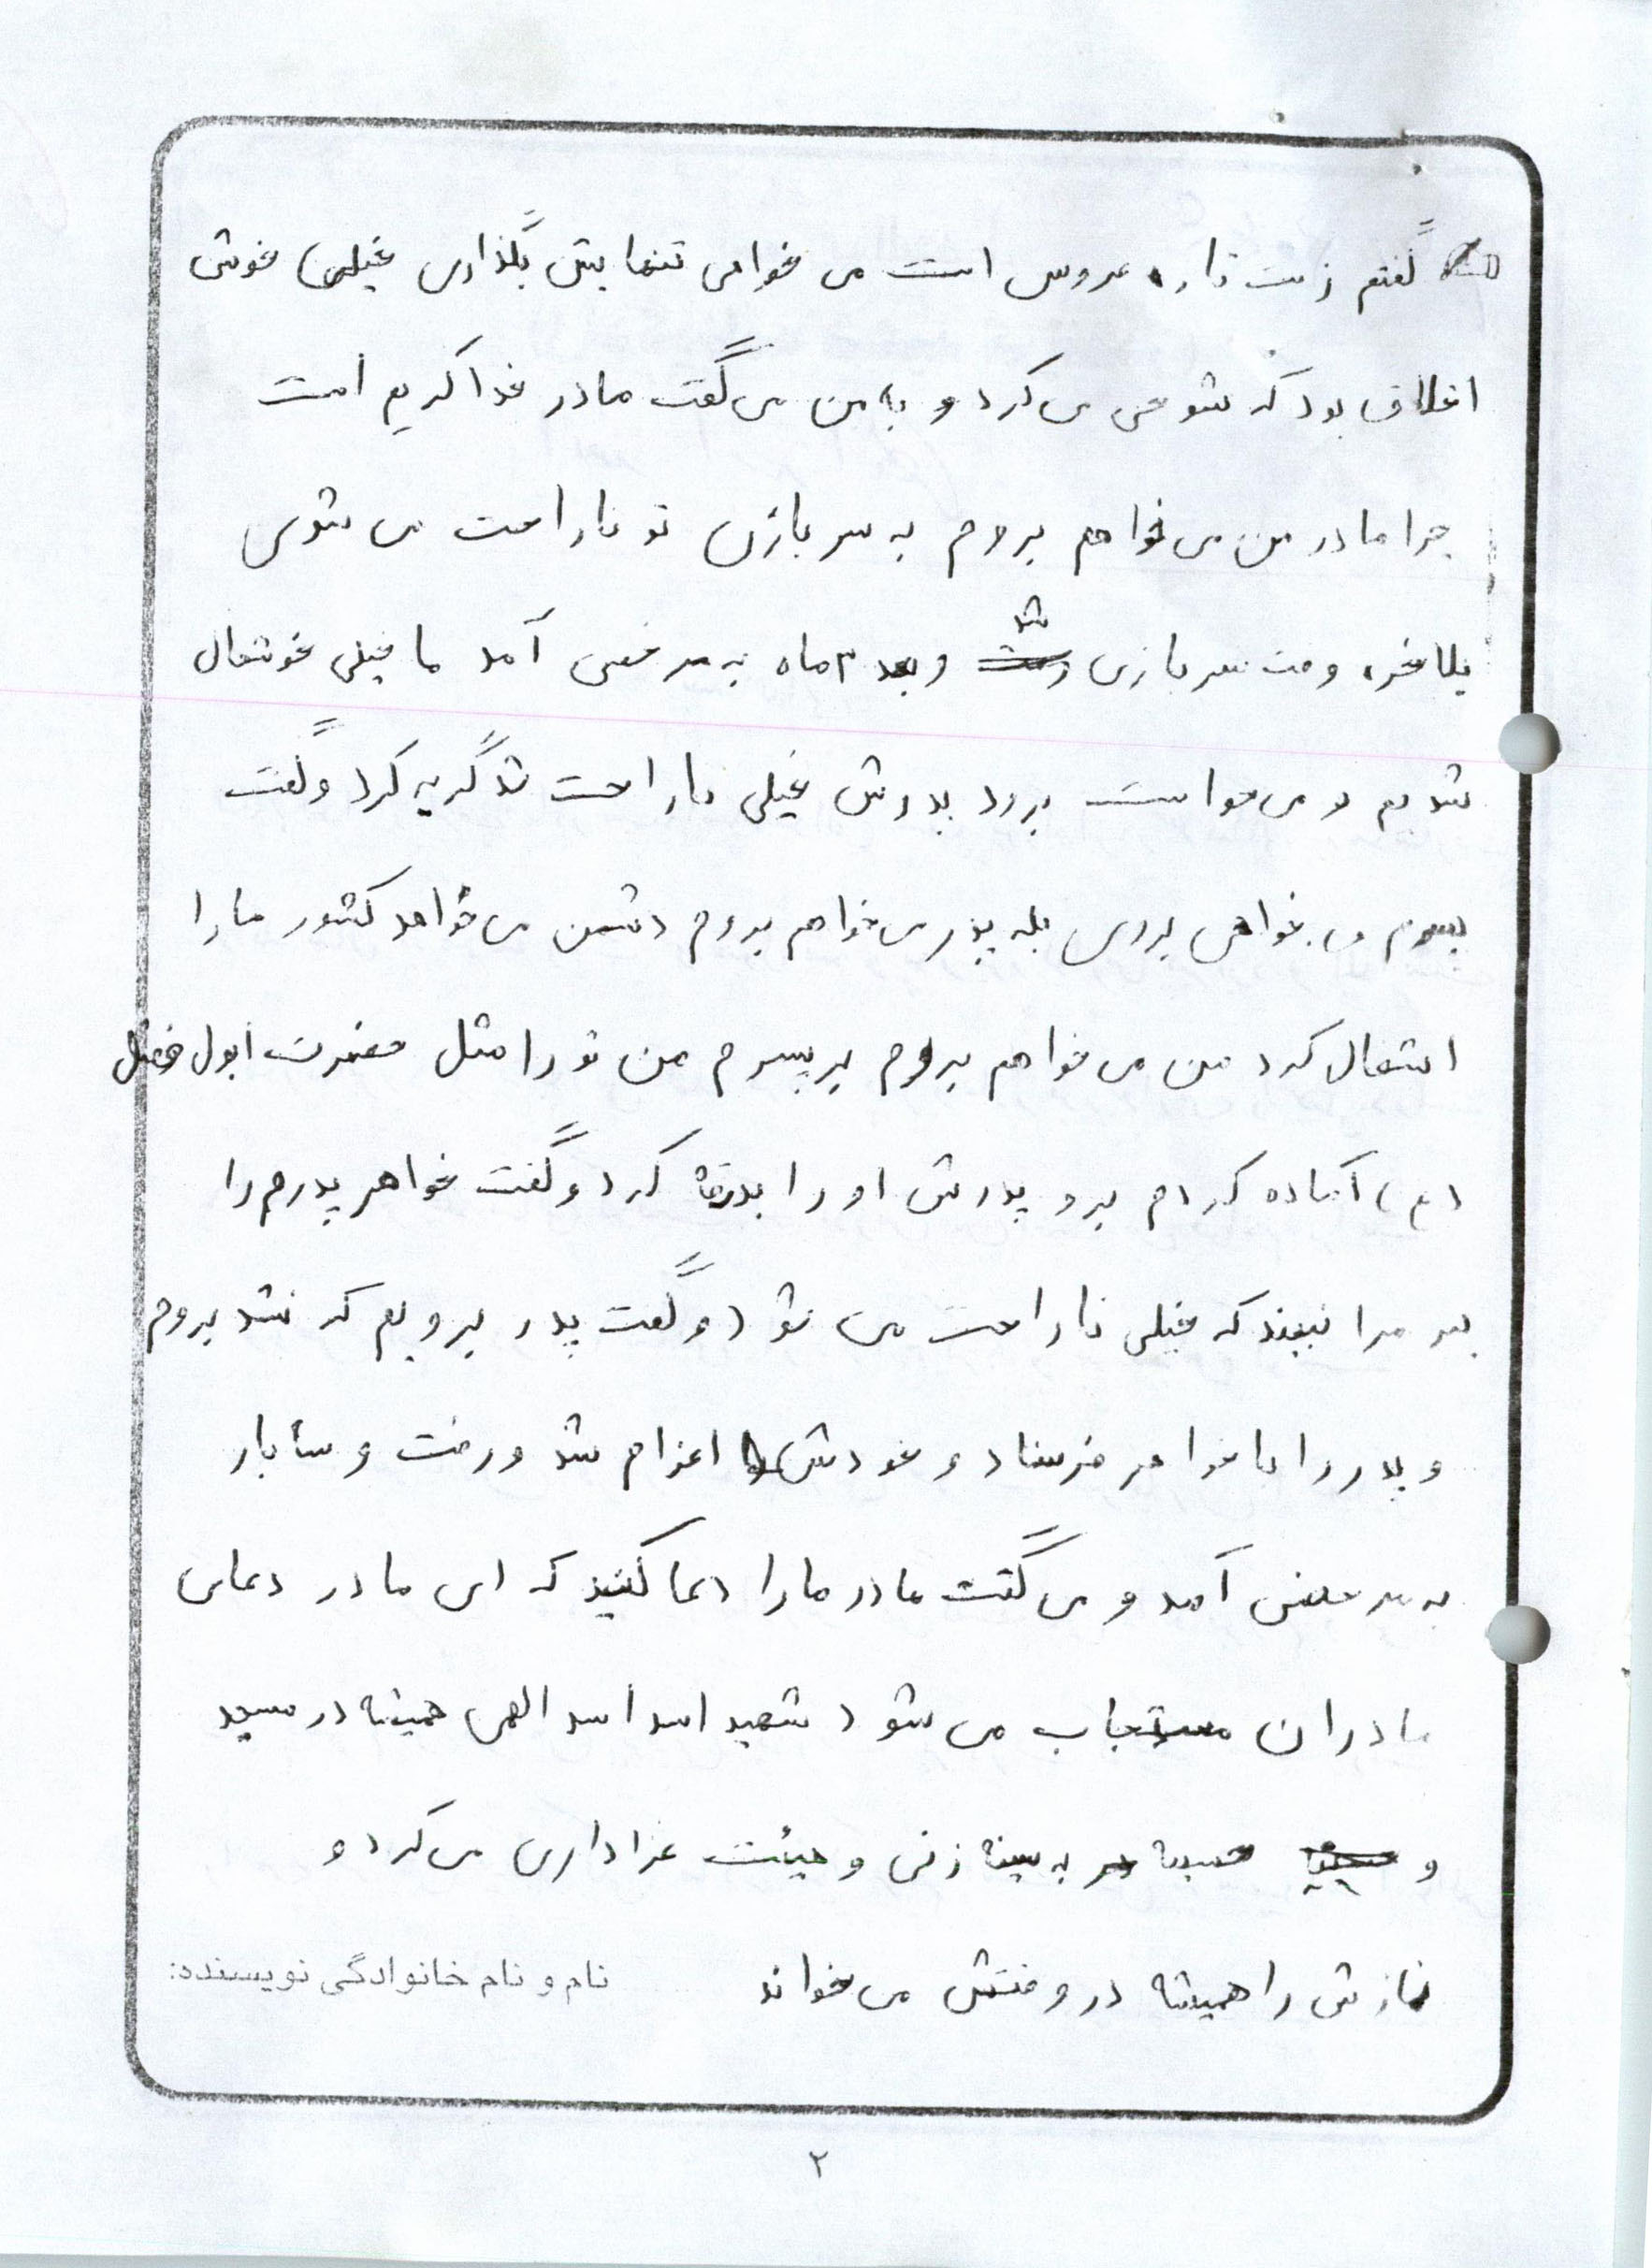 گفتم زنت تازه عروس است می خواهی تنهایش بگذاری خیلی خوش
اخلاق بود که شوخی می کرد و به من می گفت مادر خدا کریم است
چرا مادر من می خواهم بروم به سربازی تو ناراحت می شوی
بلاخره وقت سربازی شد و بعد ۲ ماه به مرخصی آمد ما خیلی خوشحال
شدیم و می خواست برود پدرش خیلی ناراحت شد گریه کرد و گفت
پسرم می خواهی بروی بله پدر می خواهم بروم دشمن می خواهد کشور ما را
اشغال کرد من می خواهم بروم برپسرم من تو را مثل حضرت ابول فضل
(ع) آماده کردم برو پدرش او را بدرقه کرد و گفت خواهر پدرم را
ببر مرا نبیند که خیلی ناراحت می شود و گفت پدر برویم که نشد بروم
و پدر را با خواهر فرستاد و خودش اعزام شد و رفت و سه بار
به مرخصی آمد و می گفت مادر ما را دعا کنید که ای مادر دعای
مادران مستجاب می شود شهید اسد اسد الهی همیشه در مسجد
و به سینه زنی و هیئت عزاداری می کرد و
نمازش را همیشه در وقتش می خواند
نام و نام خانوادگی نویسنده:
۲